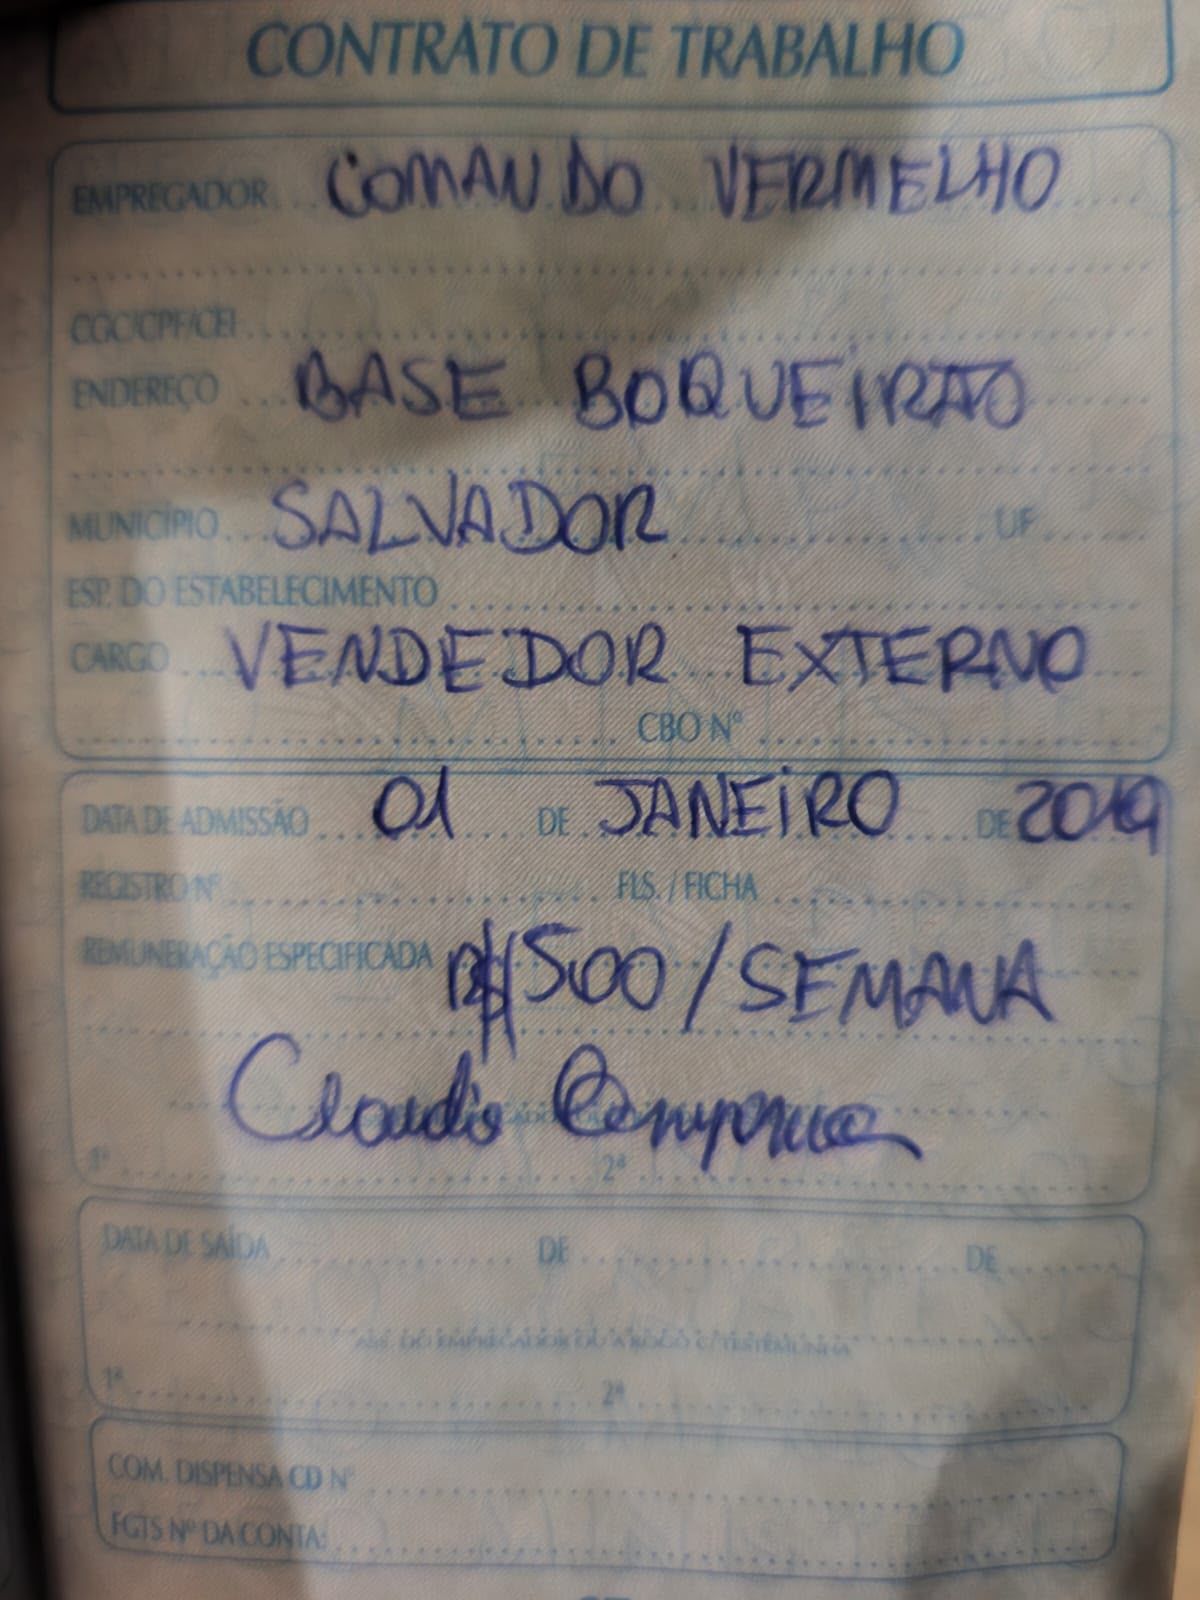 CONTRATO DE TRABALHO
EMPREGADOR COMANDO VERMELHO
CGC/CPF/CEI
ENDEREÇO BASE BOQUEIRÃO
MUNICÍPIO SALVADOR UF
ESP. DO ESTABELECIMENTO
CARGO VENDEDOR EXTERNO
CBO Nº
DATA DE ADMISSÃO 01 DE JANEIRO DE 2019
REGISTRO Nº FLS. / FICHA
REMUNERAÇÃO ESPECIFICADA R$ 500 / SEMANA
Claudio
1ª 2ª
DATA DE SAÍDA DE DE
ASS. DO EMPREGADOR OU A ROGO C/ TESTEMUNHA
1ª 2ª
COM. DISPENSA CD Nº
FGTS Nº DA CONTA: